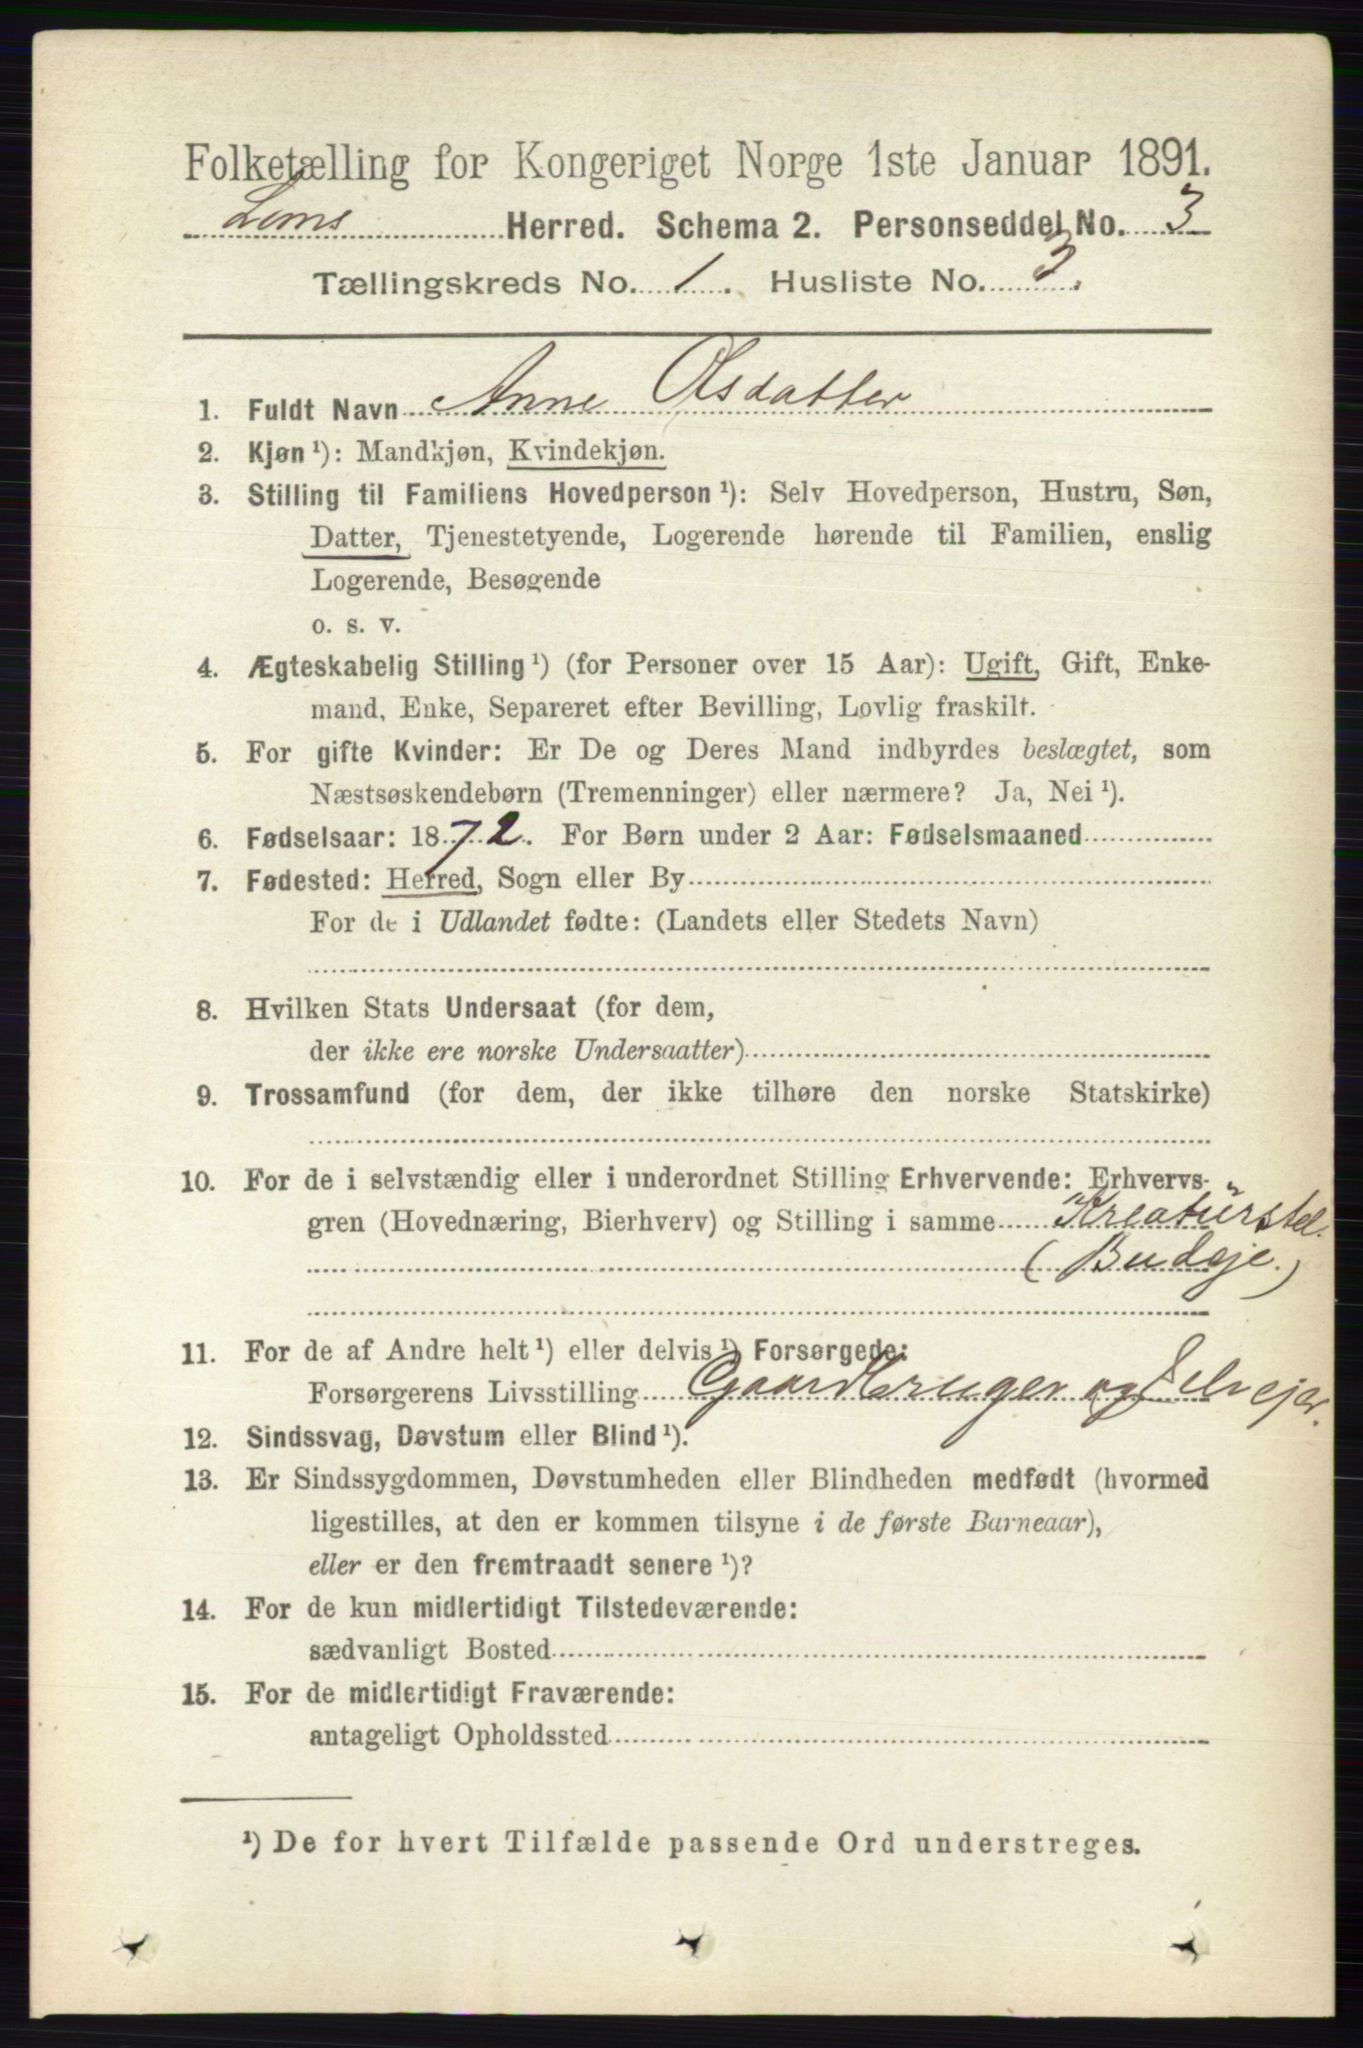 Folketælling for Kongeriget Norge 1ste Januar 1891.
Loms Herred. Schema 2. Personseddel No. 3
Tællingskreds No. 1. Husliste No. 3.
1. Fuldt Navn Anne Olsdatter
2. Kjøn ¹): Mandkjøn, Kvindekjøn.
3. Stilling til Familiens Hovedperson ¹): Selv Hovedperson, Hustru, Søn,
Datter, Tjenestetyende, Logerende hørende til Familien, enslig
Logerende, Besøgende
o. s. v.
4. Ægteskabelig Stilling ¹) (for Personer over 15 Aar): Ugift, Gift, Enke-
mand, Enke, Separeret efter Bevilling, Lovlig fraskilt.
5. For gifte Kvinder: Er De og Deres Mand indbyrdes beslægtet, som
Næstsøskendebørn (Tremenninger) eller nærmere? Ja, Nei ¹).
6. Fødselsaar: 1872. For Børn under 2 Aar: Fødselsmaaned
7. Fødested: Herred, Sogn eller By
For de i Udlandet fødte: (Landets eller Stedets Navn)
8. Hvilken Stats Undersaat (for dem,
der ikke ere norske Undersaatter)
9. Trossamfund (for dem, der ikke tilhøre den norske Statskirke)
10. For de i selvstændig eller i underordnet Stilling Erhvervende: Erhvervs-
gren (Hovednæring, Bierhverv) og Stilling i samme "Kreaturstel."
(Budeje.)
11. For de af Andre helt ¹) eller delvis ¹) Forsørgede:
Forsørgerens Livsstilling Gaardbruger og Selvejer.
12. Sindssvag, Døvstum eller Blind ¹).
13. Er Sindssygdommen, Døvstumheden eller Blindheden medfødt (hvormed
ligestilles, at den er kommen tilsyne i de første Barneaar),
eller er den fremtraadt senere ¹)?
14. For de kun midlertidigt Tilstedeværende:
sædvanligt Bosted
15. For de midlertidigt Fraværende:
antageligt Opholdssted
¹) De for hvert Tilfælde passende Ord understreges.